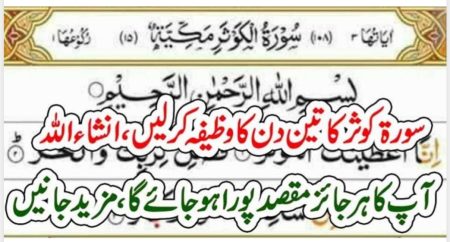 اٰیاتھا ۳ (۱۰۸) سُوْرَۃُ الْکَوْثَرِ مَکِّیَّۃٌ (۱۵) رکوعھا ۱
بِسْمِ اللّٰهِ الرَّحْمٰنِ الرَّحِیْمِ
سورۃ کوثر کا تین دن کا وظیفہ کر لیں، انشاء اللہ
اِنَّاۤ اَعْطَیْنٰكَ الْكَوْثَرَ فَصَلِّ لِرَبِّكَ وَ انْحَرْ
آپ کا ہر جائز مقصد پورا ہو جائے گا، مزید جانیں